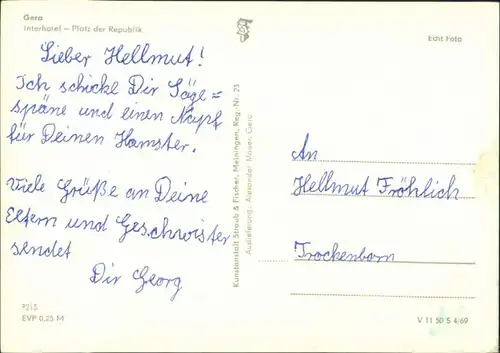 Gera
Interhotel – Platz der Republik
Echt Foto
Lieber Hellmut!
Ich schicke Dir Säge=
späne und einen Napf
für Deinen Hamster.
Viele Grüße an Deine
Eltern und Geschwister
sendet
Dir Georg
Kunstanstalt Straub & Fischer, Meiningen, Reg.-Nr. 23
Auslieferung: Alexander Mauer, Gera
An
Hellmut Fröhlich
Trockenborn
EVP 0,25 M
V 11 50 S 4/69